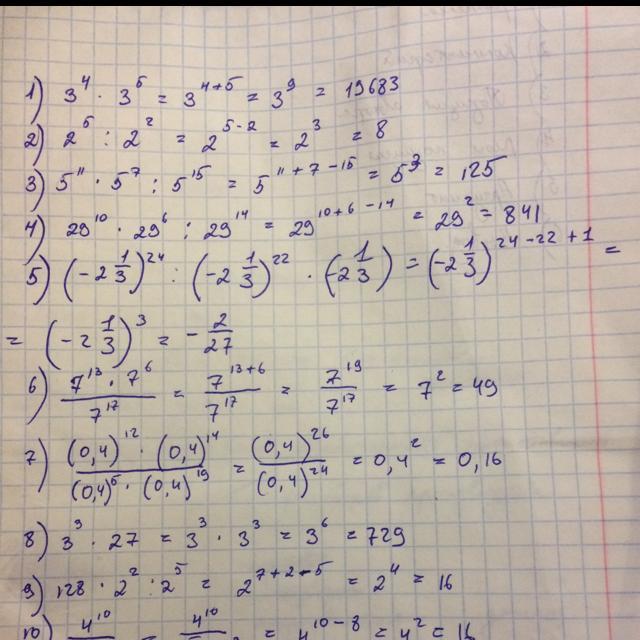 1) 3⁴ · 3⁵ = 3⁴⁺⁵ = 3⁹ = 19683
2) 2⁵ : 2² = 2⁵⁻² = 2³ = 8
3) 5¹¹ · 5⁷ : 5¹⁵ = 5¹¹⁺⁷⁻¹⁵ = 5³ = 125
4) 29¹⁰ · 29⁶ : 29¹⁴ = 29¹⁰⁺⁶⁻¹⁴ = 29² = 841
5) (-2 1/3)²⁴ : (-2 1/3)²² · (-2 1/3) = (-2 1/3)²⁴⁻²²⁺¹ =
= (-2 1/3)³ = - 2/27
6) 7¹³ · 7⁶ / 7¹⁷ = 7¹³⁺⁶ / 7¹⁷ = 7¹⁹ / 7¹⁷ = 7² = 49
7) (0,4)¹² · (0,4)¹⁴ / (0,4)⁵ · (0,4)¹⁹ = (0,4)²⁶ / (0,4)²⁴ = 0,4² = 0,16
8) 3³ · 27 = 3³ · 3³ = 3⁶ = 729
9) 128 · 2² : 2⁵ = 2⁷⁺²⁻⁵ = 2⁴ = 16
10) 4¹⁰ = 4¹⁰ = 4¹⁰⁻⁸ = 4² = 16